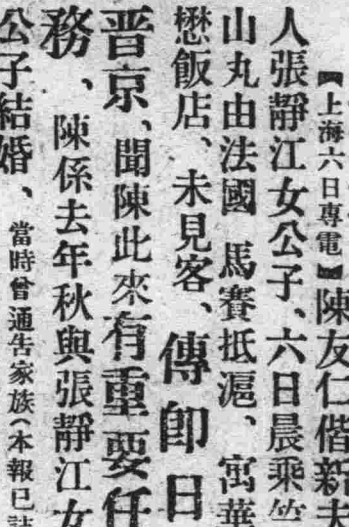 【上海六日專電】陳友仁偕新夫
人張靜江女公子、六日晨乘
山丸由法國馬賽抵滬、寓華
懋飯店、未見客、傳卽日
晋京、聞陳此來有重要任
務、陳係去年秋與張靜江女
公子結婚、當時曾通告家族(本報已誌